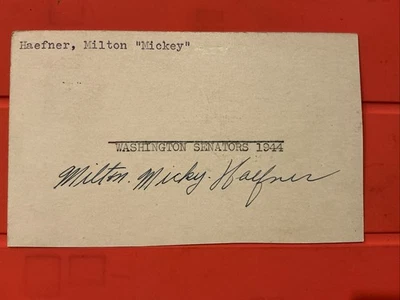 Haefner, Milton "Mickey"
WASHINGTON SENATORS 1944
Milton. Micky. Haefner